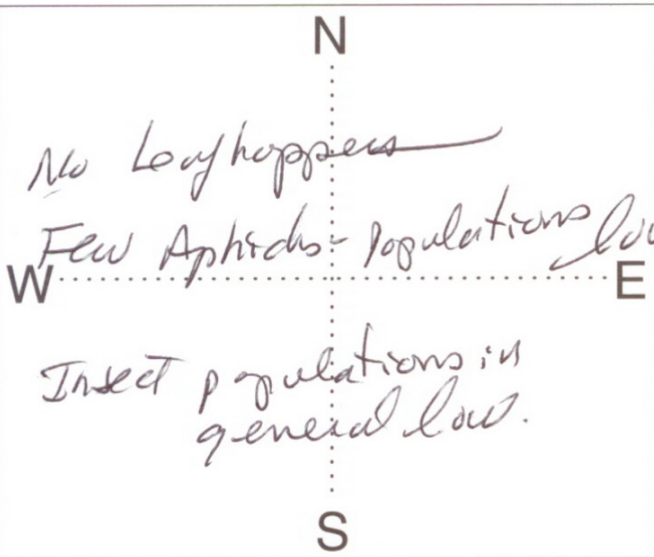 N
No Leafhoppers
Few Aphids - Populations low
W E
Insect populations in
general low.
S